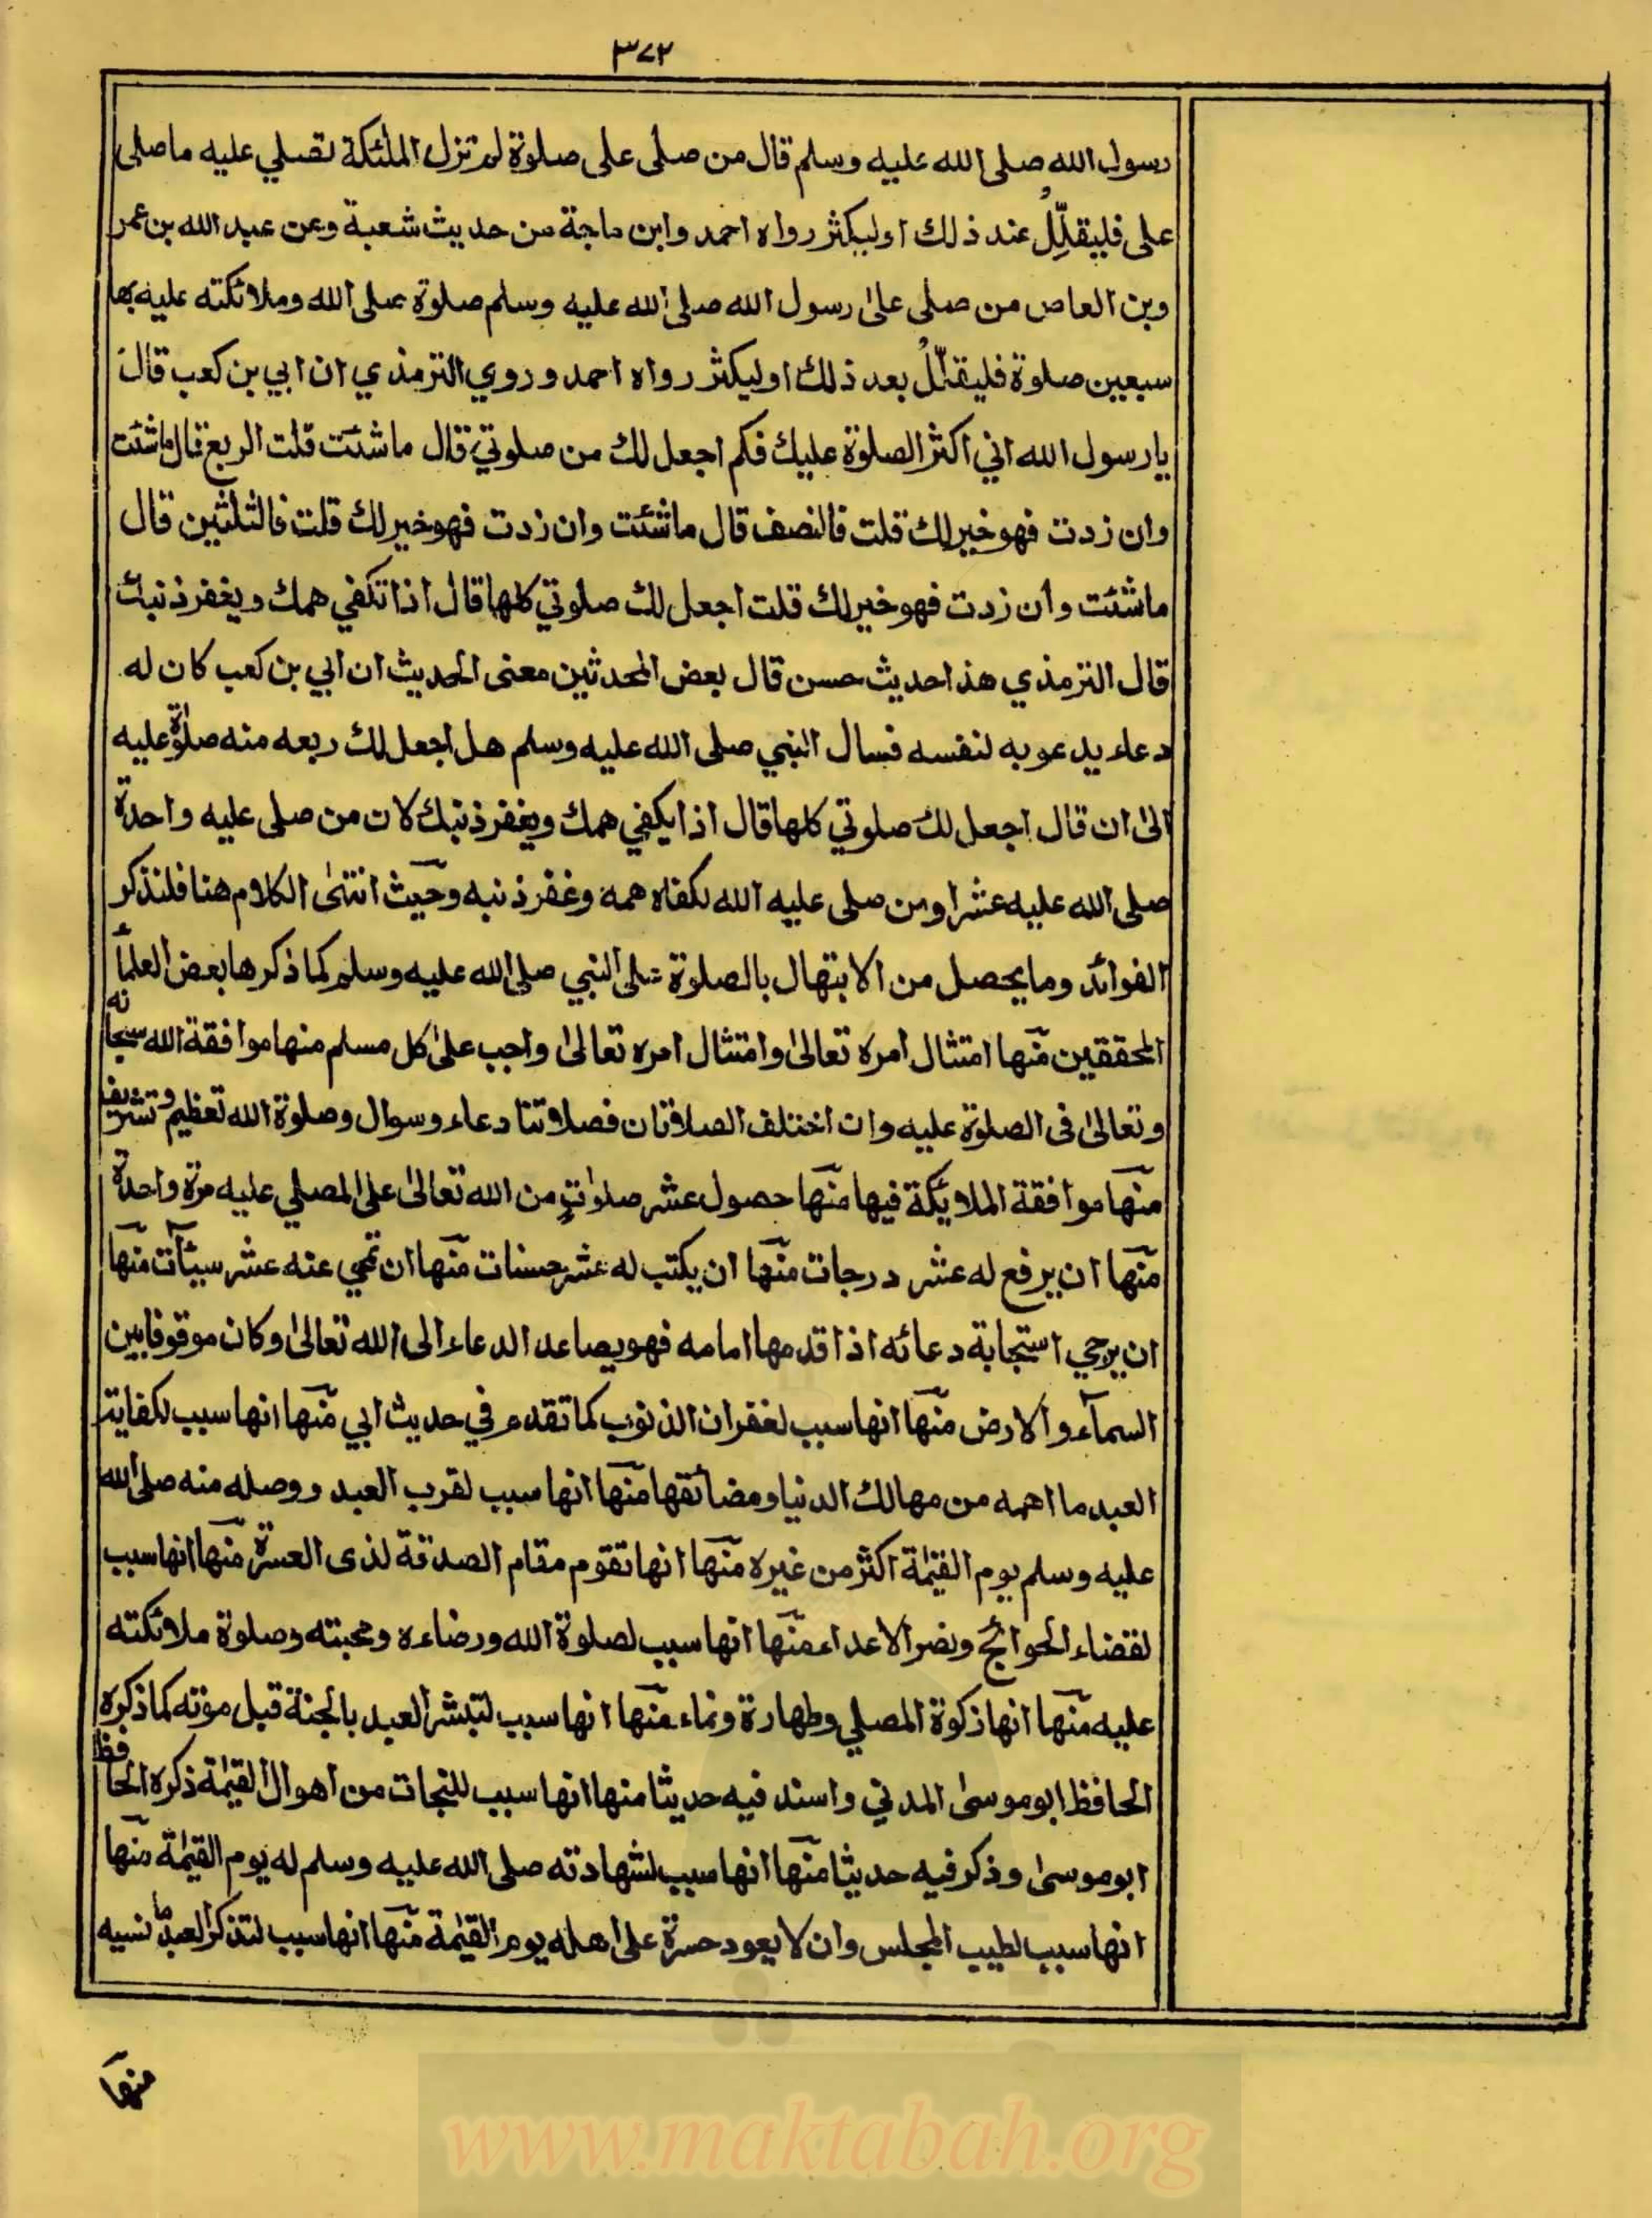 ٣٧٢
رسول الله صلى الله عليه وسلم قال من صلى على صلوة لم تزل الملئكة تصلي عليه ما صلى
على فليقلّلُ عند ذلك او ليكثر رواه احمد وابن ماجة من حديث شعبة وعن عبد الله بن عمر
وبن العاص من صلى على رسول الله صلى الله عليه وسلم صلوة صلى الله وملائكته عليه بها
سبعين صلوة فليقلّلُ بعد ذلك او ليكثر رواه احمد وروي الترمذي ان ابي بن كعب قال
يا رسول الله اني اكثر الصلوة عليك فكم اجعل لك من صلوتي قال ما شئت قلت الربع قال ما شئت
وان زدت فهو خير لك قلت فالنصف قال ما شئت وان زدت فهو خير لك قلت فالثلثين قال
ما شئت وان زدت فهو خير لك قلت اجعل لك صلوتي كلها قال اذا تكفي همك ويغفر ذنبك
قال الترمذي هذا حديث حسن قال بعض المحدثين معنى الحديث ان ابي بن كعب كان له
دعاء يدعو به لنفسه فسال النبي صلى الله عليه وسلم هل اجعل لك ربعه منه صلوة عليه
الى ان قال اجعل لك صلوتي كلها قال اذا يكفي همك ويغفر ذنبك لان من صلى عليه واحدة
صلى الله عليه عشرا ومن صلى عليه الله لكفاه همه وغفر ذنبه وحيث انتهى الكلام هنا فلنذكر
الفوائد وما يحصل من الابتهال بالصلوة على النبي صلى الله عليه وسلم كما ذكرها بعض العلمآ
المحققين منها امتثال امره تعالى وامتثال امره تعالى واجب على كل مسلم منها موافقة الله سبحانه
وتعالى فى الصلوة عليه وان اختلف الصلاتان فصلاتنا دعاء وسوال وصلوة الله تعظيم وتشريف
منها موافقة الملائكة فيها منها حصول عشر صلواتٍ من الله تعالى على المصلي عليه مرة واحدة
منها ان يرفع له عشر درجات منها ان يكتب له عشر حسنات منها ان تمحي عنه عشر سيئات منها
ان يرجي استجابة دعائه اذا قدمها امامه فهو يصاعد الدعاء الى الله تعالى وكان موقوفا بين
السمآء والارض منها انها سبب لغفران الذنوب كما تقدم في حديث ابي منها انها سبب لكفاية
العبد ما اهمه من مهالك الدنيا ومضائقها منها انها سبب لقرب العبد ووصله منه صلى الله
عليه وسلم يوم القيمة اكثر من غيره منها انها تقوم مقام الصدقة لذى العسرة منها انها سبب
لقضاء الحوائج ونصر الاعداء منها انها سبب لصلوة الله ورضاءه ومحبته وصلوة ملائكته
عليه منها انها زكوة المصلي وطهارة ونماء منها انها سبب لتبشر العبد بالجنة قبل موته كما ذكره
الحافظ ابو موسى المدني واسند فيه حديثا منها انها سبب للنجات من اهوال القيمة ذكره الحافظ
ابو موسى وذكر فيه حديثا منها انها سبب لشهادته صلى الله عليه وسلم له يوم القيمة منها
انها سبب لطيب المجلس وان لا يعود حسرة على اهله يوم القيمة منها انها سبب لتذكر العبد ما نسيه
منها
www.maktabah.org